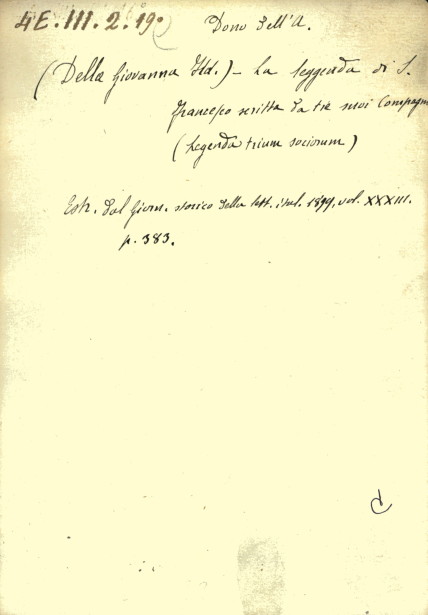 4E. III. 2. 19.
Dono dell'A.
(Della Giovanna Ild.) - La leggenda di S.
Francesco scritta da tre suoi Compagn
(Legenda trium sociorum)
Estr. dal Giorn. storico della lett. ital. 1899, vol. XXXIII.
p. 383.